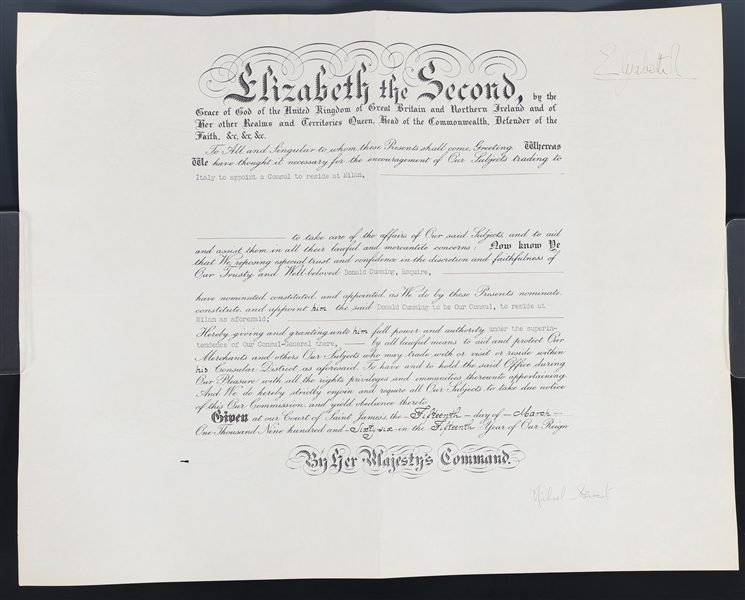 Elizabeth R
Elizabeth the Second, by the
Grace of God of the United Kingdom of Great Britain and Northern Ireland and of
Her other Realms and Territories Queen, Head of the Commonwealth, Defender of the
Faith, &c, &c, &c.
To All and Singular to whom these Presents shall come, Greeting. Whereas
We have thought it necessary for the encouragement of Our Subjects trading to
Italy to appoint a Consul to reside at Milan,
to take care of the affairs of Our said Subjects, and to aid
and assist them in all their lawful and mercantile concerns: Now know Ye
that We, reposing especial trust and confidence in the discretion and faithfulness of
Our Trusty and Well-beloved Donald Cumming, Esquire,
have nominated, constituted, and appointed, as We do by these Presents nominate,
constitute, and appoint him the said Donald Cumming to be Our Consul, to reside at
Milan as aforesaid;
Hereby giving and granting unto him full power and authority, under the superin-
tendence of Our Consul-General there, by all lawful means to aid and protect Our
Merchants and others Our Subjects who may trade with or visit or reside within
his Consular District as aforesaid. To have and to hold the said Office during
Our Pleasure with all the rights, privileges and immunities thereunto appertaining.
And We do hereby strictly enjoin and require all Our Subjects to take due notice
of this Our Commission, and yield obedience thereto.
Given at our Court of Saint James's, the Fifteenth day of March
One Thousand Nine hundred and Sixty-six in the Fifteenth Year of Our Reign
By Her Majesty's Command.
Michael Stewart